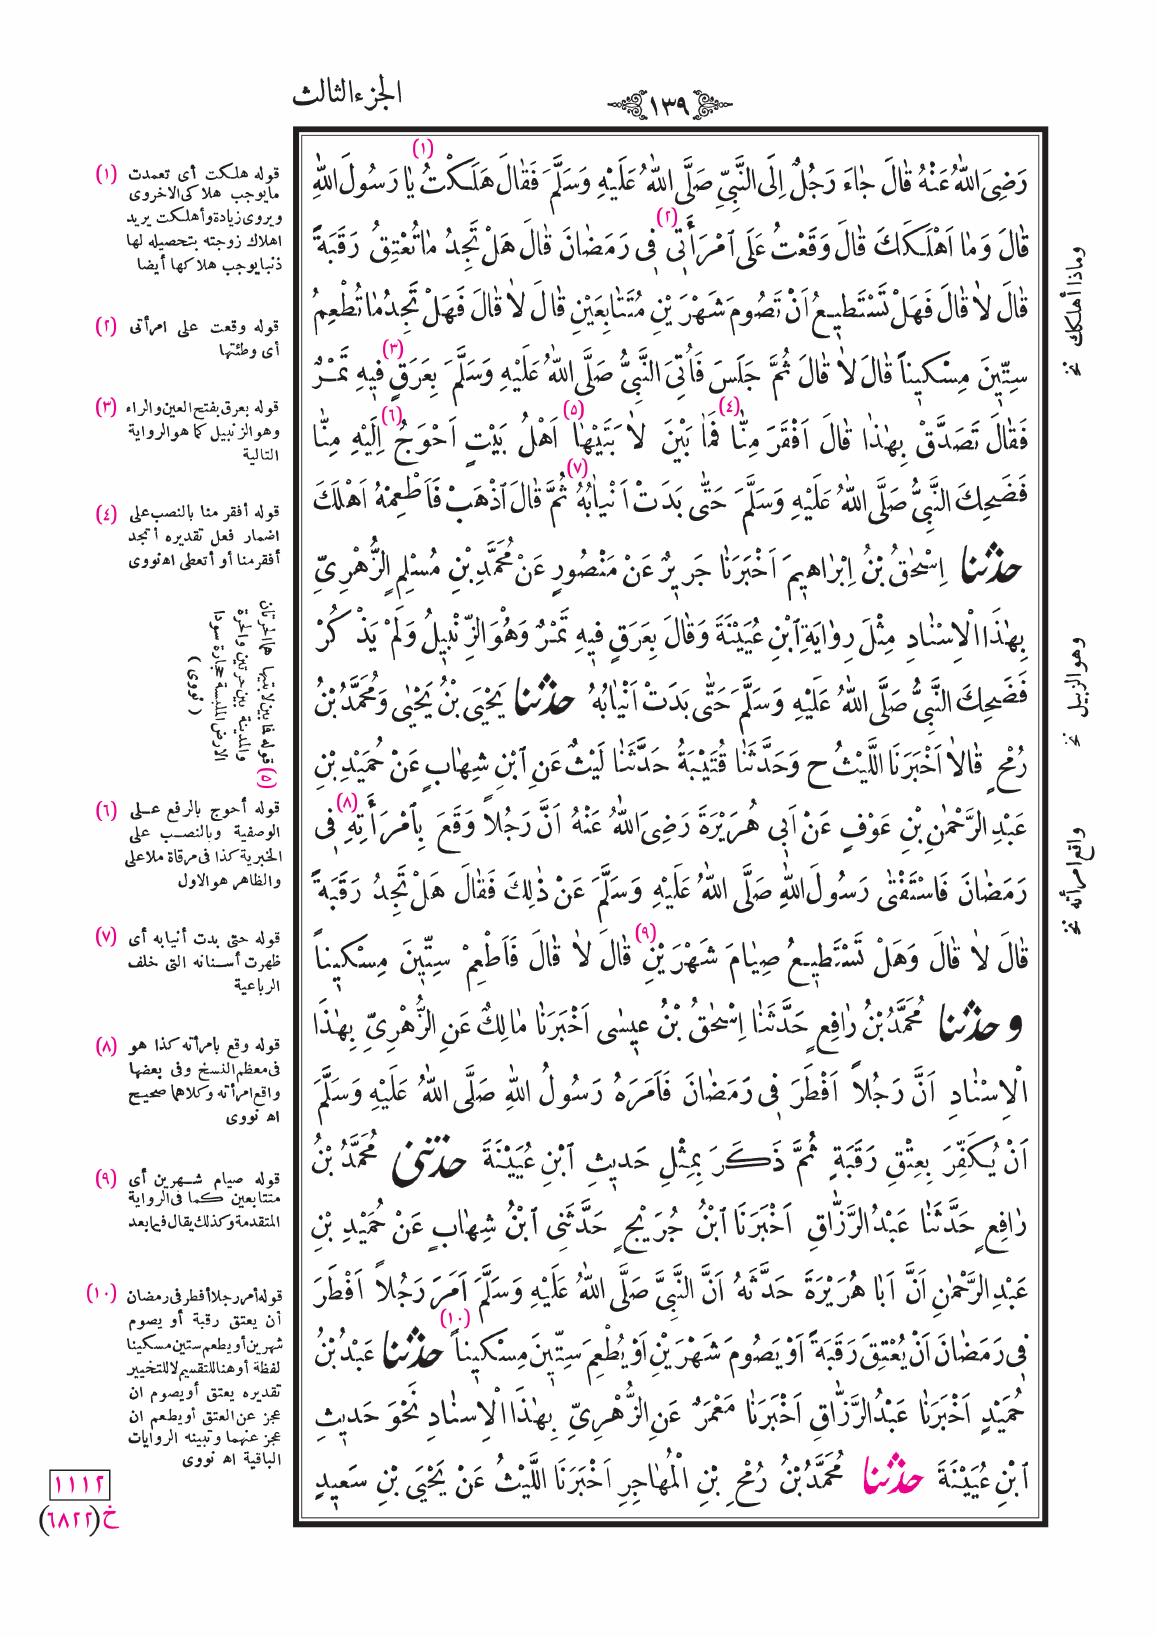 الجزء الثالث
١٣٩
رَضِىَ اللّٰهُ عَنْهُ قَالَ جَاءَ رَجُلٌ اِلَى النَّبِىِّ صَلَّى اللّٰهُ عَلَيْهِ وَسَلَّمَ فَقَالَ هَلَكْتُ (١) يَا رَسُولَ اللّٰهِ
قَالَ وَمَا اَهْلَكَكَ قَالَ وَقَعْتُ عَلَى امْرَأَتِى (٢) فِى رَمَضَانَ قَالَ هَلْ تَجِدُ مَا تُعْتِقُ رَقَبَةً
قَالَ لَا قَالَ فَهَلْ تَسْتَطِيعُ اَنْ تَصُومَ شَهْرَيْنِ مُتَتَابِعَيْنِ قَالَ لَا قَالَ فَهَلْ تَجِدُ مَا تُطْعِمُ
سِتِّينَ مِسْكِيناً قَالَ لَا قَالَ ثُمَّ جَلَسَ فَاُتِىَ النَّبِىُّ صَلَّى اللّٰهُ عَلَيْهِ وَسَلَّمَ بِعَرَقٍ (٣) فِيهِ تَمْرٌ
فَقَالَ تَصَدَّقْ بِهٰذَا قَالَ اَفْقَرَ مِنَّا (٤) فَمَا بَيْنَ لَابَتَيْهَا (٥) اَهْلُ بَيْتٍ اَحْوَجُ (٦) اِلَيْهِ مِنَّا
فَضَحِكَ النَّبِىُّ صَلَّى اللّٰهُ عَلَيْهِ وَسَلَّمَ حَتّٰى بَدَتْ اَنْيَابُهُ (٧) ثُمَّ قَالَ اذْهَبْ فَاَطْعِمْهُ اَهْلَكَ
حدثنا اِسْحٰقُ بْنُ اِبْرَاهِيمَ اَخْبَرَنَا جَرِيرٌ عَنْ مَنْصُورٍ عَنْ مُحَمَّدِ بْنِ مُسْلِمٍ الزُّهْرِىِّ
بِهٰذَا الْاِسْنَادِ مِثْلَ رِوَايَةِ ابْنِ عُيَيْنَةَ وَقَالَ بِعَرَقٍ فِيهِ تَمْرٌ وَهُوَ الزِّنْبِيلُ وَلَمْ يَذْكُرْ
فَضَحِكَ النَّبِىُّ صَلَّى اللّٰهُ عَلَيْهِ وَسَلَّمَ حَتّٰى بَدَتْ اَنْيَابُهُ حدثنا يَحْيَى بْنُ يَحْيٰى وَمُحَمَّدُ بْنُ
رُمْحٍ قَالَا اَخْبَرَنَا اللَّيْثُ ح وَحَدَّثَنَا قُتَيْبَةُ حَدَّثَنَا لَيْثٌ عَنِ ابْنِ شِهَابٍ عَنْ حُمَيْدِ بْنِ
عَبْدِ الرَّحْمٰنِ بْنِ عَوْفٍ عَنْ اَبِى هُرَيْرَةَ رَضِىَ اللّٰهُ عَنْهُ اَنَّ رَجُلاً وَقَعَ بِامْرَأَتِهِ (٨) فِى
رَمَضَانَ فَاسْتَفْتٰى رَسُولَ اللّٰهِ صَلَّى اللّٰهُ عَلَيْهِ وَسَلَّمَ عَنْ ذٰلِكَ فَقَالَ هَلْ تَجِدُ رَقَبَةً
قَالَ لَا قَالَ وَهَلْ تَسْتَطِيعُ صِيَامَ شَهْرَيْنِ (٩) قَالَ لَا قَالَ فَاَطْعِمْ سِتِّينَ مِسْكِيناً
و حدثنا مُحَمَّدُ بْنُ رَافِعٍ حَدَّثَنَا اِسْحٰقُ بْنُ عِيسٰى اَخْبَرَنَا مَالِكٌ عَنِ الزُّهْرِىِّ بِهٰذَا
الْاِسْنَادِ اَنَّ رَجُلاً اَفْطَرَ فِى رَمَضَانَ فَاَمَرَهُ رَسُولُ اللّٰهِ صَلَّى اللّٰهُ عَلَيْهِ وَسَلَّمَ
اَنْ يُكَفِّرَ بِعِتْقِ رَقَبَةٍ ثُمَّ ذَكَرَ بِمِثْلِ حَدِيثِ ابْنِ عُيَيْنَةَ حدثنى مُحَمَّدُ بْنُ
رَافِعٍ حَدَّثَنَا عَبْدُ الرَّزَّاقِ اَخْبَرَنَا ابْنُ جُرَيْجٍ حَدَّثَنِى ابْنُ شِهَابٍ عَنْ حُمَيْدِ بْنِ
عَبْدِ الرَّحْمٰنِ اَنَّ اَبَا هُرَيْرَةَ حَدَّثَهُ اَنَّ النَّبِىَّ صَلَّى اللّٰهُ عَلَيْهِ وَسَلَّمَ اَمَرَ رَجُلاً اَفْطَرَ
فِى رَمَضَانَ اَنْ يُعْتِقَ رَقَبَةً اَوْ يَصُومَ شَهْرَيْنِ اَوْ يُطْعِمَ سِتِّينَ مِسْكِيناً (١٠) حدثنا عَبْدُ بْنُ
حُمَيْدٍ اَخْبَرَنَا عَبْدُ الرَّزَّاقِ اَخْبَرَنَا مَعْمَرٌ عَنِ الزُّهْرِىِّ بِهٰذَا الْاِسْنَادِ نَحْوَ حَدِيثِ
ابْنِ عُيَيْنَةَ حدثنا مُحَمَّدُ بْنُ رُمْحِ بْنِ الْمُهَاجِرِ اَخْبَرَنَا اللَّيْثُ عَنْ يَحْيَى بْنِ سَعِيدٍ
وماذا أهلكك نخ
وهو الزبيل نخ
واقع امرأته نخ
(١) قوله هلكت أى تعمدت
مايوجب هلاكى الاخروى
ويروى زيادة وأهلكت يريد
اهلاك زوجته بتحصيله لها
ذنبا يوجب هلاكها أيضا
(٢) قوله وقعت على امرأتى
أى وطئتها
(٣) قوله بعرق بفتح العين والراء
وهو الزنبيل كما هو الرواية
التالية
(٤) قوله أفقر منا بالنصب على
اضمار فعل تقديره أتجد
أفقر منا أو أتعطى اه نووى
(٥) قوله فما بين لابتيها هما الحرتان
والمدينة بين حرتين والحرة
الارض الملبسة حجارة سودا
(نووى)
(٦) قوله أحوج بالرفع على
الوصفية وبالنصب على
الخبرية كذا فى مرقاة ملا على
والظاهر هو الاول
(٧) قوله حتى بدت أنيابه أى
ظهرت أسنانه التى خلف
الرباعية
(٨) قوله وقع بامرأته كذا هو
فى معظم النسخ وفى بعضها
واقع امرأته وكلاهما صحيح
اه نووى
(٩) قوله صيام شهرين أى
متتابعين كما فى الرواية
المتقدمة وكذلك يقال فيما بعد
(١٠) قوله أمر رجلا أفطر فى رمضان
أن يعتق رقبة أو يصوم
شهرين أو يطعم ستين مسكينا
لفظة أو هنا للتقسيم لا للتخيير
تقديره يعتق أو يصوم ان
عجز عن العتق أو يطعم ان
عجز عنهما وتبينه الروايات
الباقية اه نووى
١١١٢
خ (٦٨٢٢)